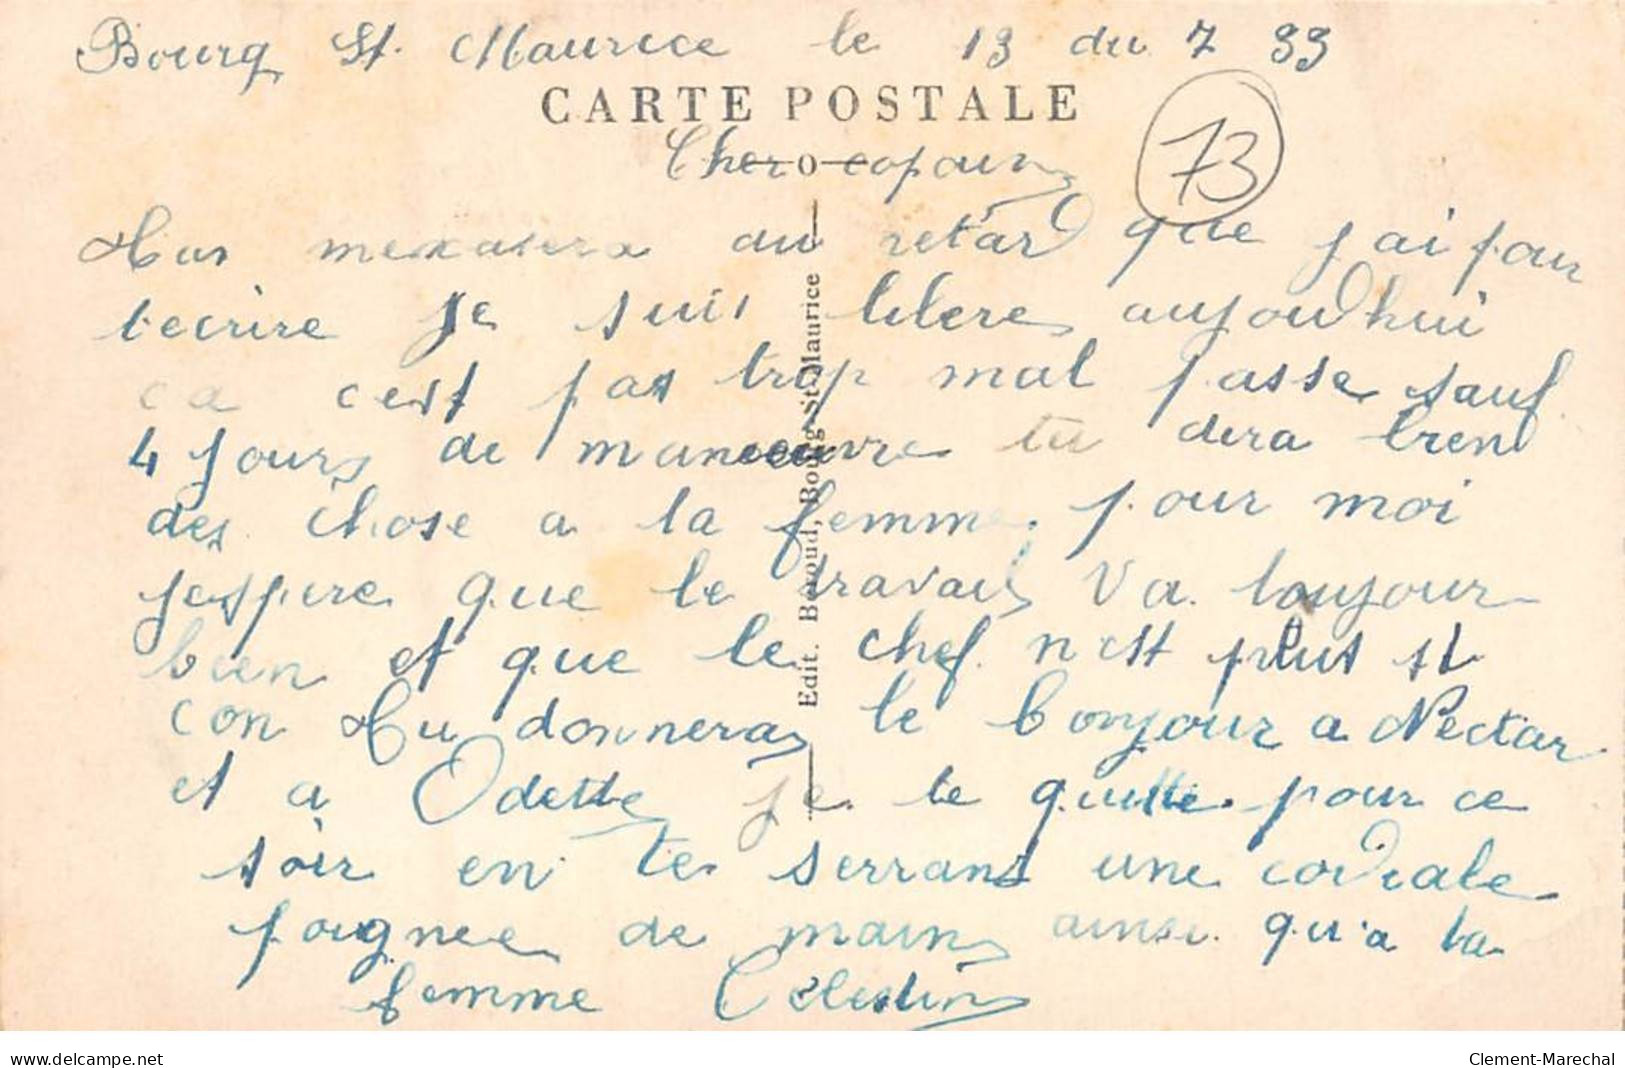 Bourg St. Maurice le 13 du 7 33
CARTE POSTALE
73
Cher copain
tu mexcusera du retard que j'ai pour
tecrire je suis libere aujourdhui
ca cest pas trop mal passe sauf
4 jours de manoeuvre tu dira bien
des chose a ta femme pour moi
jespere que le travail va toujour
bien et que le chef n'est plus si
con tu donnera le bonjour a Nectar
et a Odette je te quitte pour ce
soir en te serrant une cordiale
poignee de main ainsi qu'a ta
femme Célestin
Edit. Béroud, Bourg-St-Maurice
www.delcampe.net
Clement-Marechal